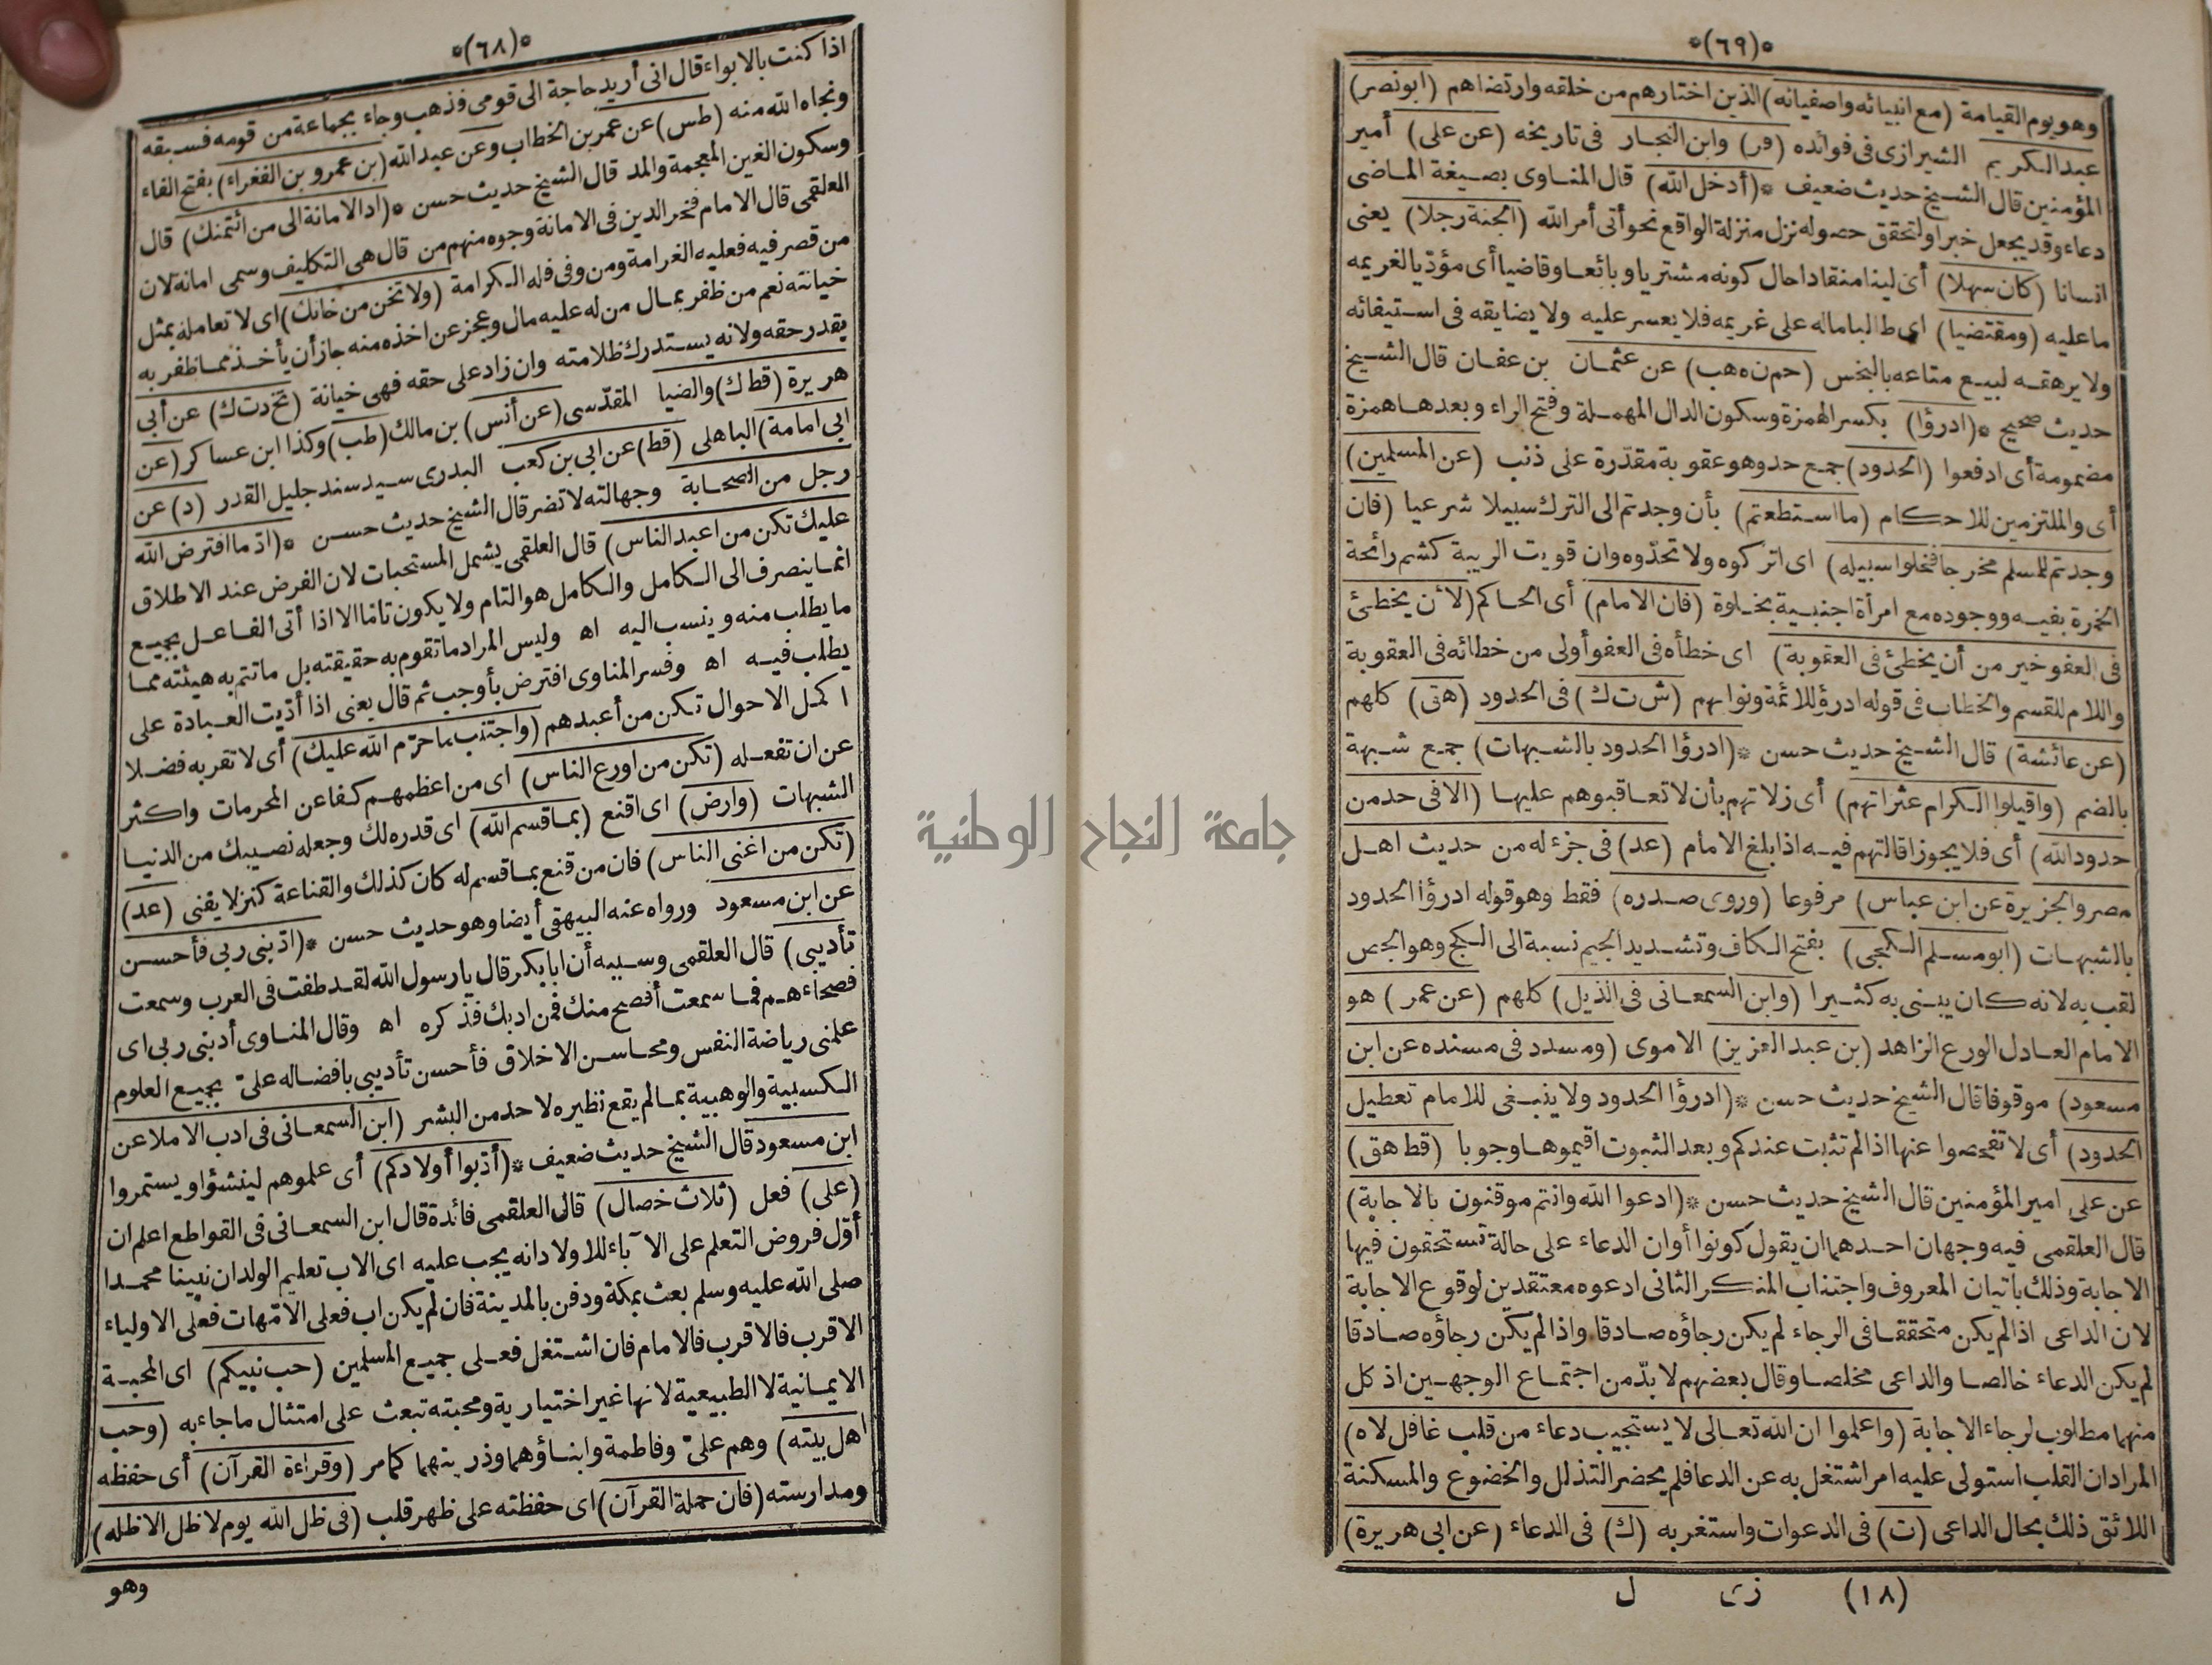 *(٦٨)*
اذا كنت بالابواء قال انى أريد حاجة الى قومى فذهب وجاء بجماعة من قومه فسبقه
ونجاه الله منه (طس) عن عمر بن الخطاب وعن عبد الله (بن عمرو بن الفغراء) بفتح الفاء
وسكون الغين المعجمة والمد قال الشيخ حديث حسن *(اد الامانة الى من ائتمنك) قال
العلقمى قال الامام فخر الدين فى الامانة وجوه منهم من قال هى التكليف وسمى امانة لان
من قصر فيه فعليه الغرامة ومن وفى فله الكرامة (ولا تخن من خانك) اى لا تعامله بمثل
خيانته نعم من ظفر بمال من له عليه مال وعجز عن اخذه منه جاز أن يأخذ مما ظفر به
بقدر حقه ولانه يستدرك ظلامته وان زاد على حقه فهى خيانة (تخ دت ك) عن أبى
هريرة (قط ك) والضيا المقدّسى (عن أنس) بن مالك (طب) وكذا ابن عساكر (عن
ابى امامة) الباهلى (قط) عن ابى بن كعب البدرى سيد سند جليل القدر (د) عن
رجل من الصحابة وجهالته لا تضر قال الشيخ حديث حسن *(ادّ ما افترض الله
عليك تكن من اعبد الناس) قال العلقمى يشمل المستحبات لان الفرض عند الاطلاق
انما ينصرف الى الكامل والكامل هو التام ولا يكون تاما الا اذا أتى الفاعل بجميع
ما يطلب منه وينسب اليه اه وليس المراد ما تقوم به حقيقته بل ما تتم به هيئته مما
يطلب فيه اه وفسر المناوى افترض بأوجب ثم قال يعنى اذا أدّيت العبادة على
اكمل الاحوال تكن من أعبدهم (واجتنب ما حرّم الله عليك) أى لا تقربه فضلا
عن ان تفعله (تكن من اورع الناس) اى من اعظمهم كفا عن المحرمات واكثر
الشبهات (وارض) اى اقنع (بما قسم الله) اى قدره لك وجعله نصيبك من الدنيا
(تكن من اغنى الناس) فان من قنع بما قسم له كان كذلك والقناعة كنز لا يفنى (عد)
عن ابن مسعود ورواه عنه البيهقى أيضا وهو حديث حسن *(ادّبنى ربى فأحسن
تأديبى) قال العلقمى وسببه أن ابا بكر قال يا رسول الله لقد طفت فى العرب وسمعت
فصحاءهم فما سمعت أفصح منك فمن ادبك فذكره اه وقال المناوى أدبنى ربى اى
علمنى رياضة النفس ومحاسن الاخلاق فأحسن تأديبى بافضاله علىّ بجميع العلوم
الكسبية والوهبية بما لم يقع نظيره لاحد من البشر (ابن السمعانى فى ادب الاملا عن
ابن مسعود قال الشيخ حديث ضعيف *(أدّبوا أولادكم) أى علموهم لينشؤا ويستمروا
(على) فعل (ثلاث خصال) قال العلقمى فائدة قال ابن السمعانى فى القواطع اعلم ان
أوّل فروض التعلم على الآباء للاولاد انه يجب عليه اى الاب تعليم الولد ان نبينا محمدا
صلى الله عليه وسلم بعث بمكة ودفن بالمدينة فان لم يكن اب فعلى الامّهات فعلى الاولياء
الاقرب فالاقرب فالامام فان اشتغل فعلى جميع المسلمين (حب نبيكم) اى المحبة
الايمانية لا الطبيعية لانها غير اختيارية ومحبته تبعث على امتثال ما جاء به (وحب
اهل بيته) وهم علىّ وفاطمة وابناؤهما وذريتهما كما مر (وقراءة القرآن) أى حفظه
ومدارسته (فان حملة القرآن) اى حفظته على ظهر قلب (فى ظل الله يوم لا ظل الا ظله)
وهو
*(٦٩)*
وهو يوم القيامة (مع انبيائه واصفيائه) الذين اختارهم من خلقه وارتضاهم (ابو نصر)
عبد الكريم الشيرازى فى فوائده (فر) وابن النجار فى تاريخه (عن على) أمير
المؤمنين قال الشيخ حديث ضعيف *(أدخل الله) قال المناوى بصيغة الماضى
دعاء وقد يجعل خبرا ولتحقق حصوله نزل منزلة الواقع نحو أتى أمر الله (الجنة رجلا) يعنى
انسانا (كان سهلا) أى لينا منقادا حال كونه مشتريا وبائعا وقاضيا أى مؤدّيا لغريمه
ما عليه (ومقتضيا) اى طالبا ماله على غريمه فلا يعسر عليه ولا يضايقه فى استيفائه
ولا يرهقه لبيع متاعه بالبخس (حم ن ه هب) عن عثمان بن عفان قال الشيخ
حديث صحيح *(ادرؤا) بكسر الهمزة وسكون الدال المهملة وفتح الراء وبعدها همزة
مضمومة أى ادفعوا (الحدود) جمع حد وهو عقوبة مقدّرة على ذنب (عن المسلمين)
أى والملتزمين للاحكام (ما استطعتم) بأن وجدتم الى الترك سبيلا شرعيا (فان
وجدتم للمسلم مخرجا فخلوا سبيله) اى اتركوه ولا تحدّوه وان قويت الريبة كشم رائحة
الخمرة بفيه ووجوده مع امرأة اجنبية بخلوة (فان الامام) أى الحاكم (لأن يخطئ
فى العفو خير من أن يخطئ فى العقوبة) اى خطأه فى العفو أولى من خطائه فى العقوبة
واللام للقسم والخطاب فى قوله ادرؤا للائمة ونوابهم (ش ت ك) فى الحدود (هق) كلهم
(عن عائشة) قال الشيخ حديث حسن *(ادرؤا الحدود بالشبهات) جمع شبهة
بالضم (واقيلوا الكرام عثراتهم) أى زلاتهم بأن لا تعاقبوهم عليها (الا فى حد من
حدود الله) أى فلا يجوز اقالتهم فيه اذا بلغ الامام (عد) فى جزء له من حديث اهل
مصر والجزيرة عن ابن عباس) مرفوعا (وروى صدره) فقط وهو قوله ادرؤا الحدود
بالشبهات (ابو مسلم الكجى) بفتح الكاف وتشديد الجيم نسبة الى الكج وهو الجص
لقب به لانه كان يبنى به كثيرا (وابن السمعانى فى الذيل) كلهم (عن عمر) هو
الامام العادل الورع الزاهد (بن عبد العزيز) الاموى (ومسدد فى مسنده عن ابن
مسعود) موقوفا قال الشيخ حديث حسن *(ادرؤا الحدود ولا ينبغى للامام تعطيل
الحدود) أى لا تفحصوا عنها اذا لم تثبت عندكم وبعد الثبوت اقيموها وجوبا (قط هق)
عن على امير المؤمنين قال الشيخ حديث حسن *(ادعوا الله وانتم موقنون بالاجابة)
قال العلقمى فيه وجهان احدهما ان يقول كونوا أوان الدعاء على حالة تستحقون فيها
الاجابة وذلك باتيان المعروف واجتناب المنكر الثانى ادعوه معتقدين لوقوع الاجابة
لان الداعى اذا لم يكن متحققا فى الرجاء لم يكن رجاؤه صادقا واذا لم يكن رجاؤه صادقا
لم يكن الدعاء خالصا والداعى مخلصا وقال بعضهم لا بدّ من اجتماع الوجهين اذ كل
منهما مطلوب لرجاء الاجابة (واعلموا ان الله تعالى لا يستجيب دعاء من قلب غافل لاه)
المراد ان القلب استولى عليه امر اشتغل به عن الدعا فلم يحضر التذلل والخضوع والمسكنة
اللائق ذلك بحال الداعى (ت) فى الدعوات واستغربه (ك) فى الدعاء (عن ابى هريرة)
(١٨) زى ل
جامعة النجاح الوطنية